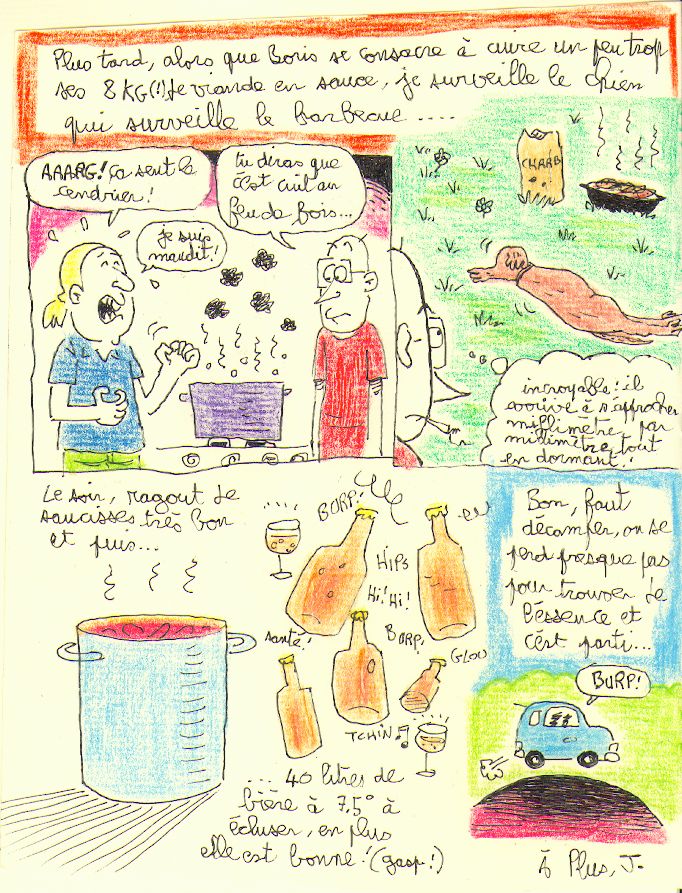 Plus tard, alors que Boris se consacre à cuire un peu trop
ses 8 KG(!) de viande en sauce, je surveille le chien
qui surveille le barbecue.....
AAARG! ça sent le
cendrier!
je suis
maudit!
tu diras que
c'est cuit au
feu de bois...
CHARB
incroyable! il
arrive à s'approcher
millimètre par
millimètre tout
en dormant!
Le soir, ragout de
saucisses très bon
et puis...
BURP!
HIPS
Hi! Hi!
santé!
BURP!
GLOU
TCHIN
... 40 litres de
bière à 7,5° à
écluser, en plus
elle est bonne! (gasp!)
Bon, faut
décamper, on se
perd presque pas
pour trouver de
l'essence et
c'est parti...
BURP!
à Plus, J.